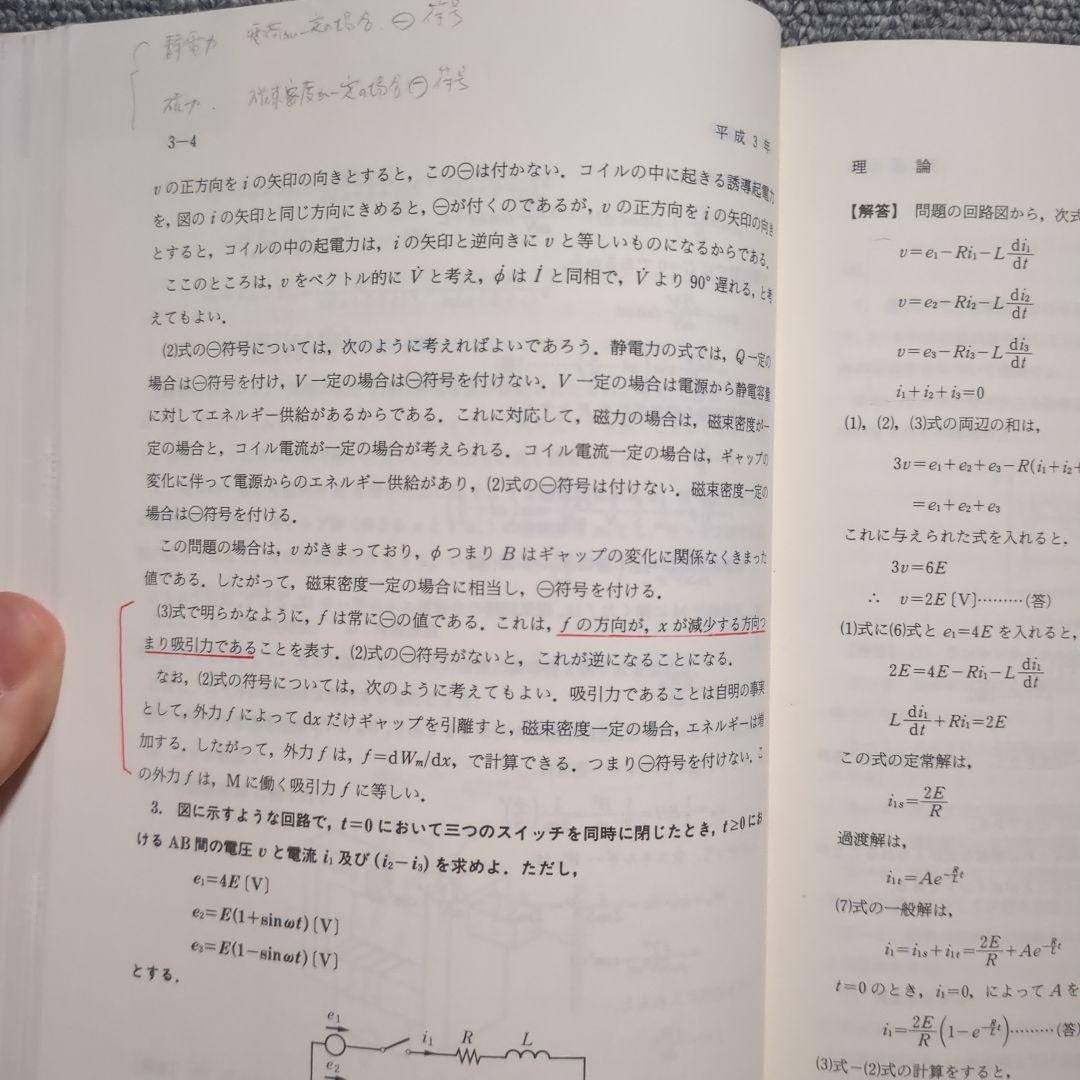 静電力 電荷が一定の場合 ㊀符号
磁力. 磁束密度が一定の場合㊀符号
3—4
平成3年
vの正方向をiの矢印の向きとすると，この㊀は付かない．コイルの中に起きる誘導起電力
を，図のiの矢印と同じ方向にきめると，㊀が付くのであるが，vの正方向をiの矢印の向き
とすると，コイルの中の起電力は，iの矢印と逆向きにvと等しいものになるからである．
ここのところは，vをベクトル的にV̇と考え，φ̇はİと同相で，V̇より90°遅れる，と考
えてもよい．
(2)式の㊀符号については，次のように考えればよいであろう．静電力の式では，Q一定の
場合は㊀符号を付け，V一定の場合は㊀符号を付けない．V一定の場合は電源から静電容量
に対してエネルギー供給があるからである．これに対応して，磁力の場合は，磁束密度が一
定の場合と，コイル電流が一定の場合が考えられる．コイル電流一定の場合は，ギャップの
変化に伴って電源からのエネルギー供給があり，(2)式の㊀符号は付けない．磁束密度一定の
場合は㊀符号を付ける．
この問題の場合は，vがきまっており，φつまりBはギャップの変化に関係なくきまった
値である．したがって，磁束密度一定の場合に相当し，㊀符号を付ける．
(3)式で明らかなように，fは常に㊀の値である．これは，fの方向が，xが減少する方向つ
まり吸引力であることを表す．(2)式の㊀符号がないと，これが逆になることになる．
なお，(2)式の符号については，次のように考えてもよい．吸引力であることは自明の事実
として，外力fによってdxだけギャップを引離すと，磁束密度一定の場合，エネルギーは増
加する．したがって，外力fは，f=dWₘ/dx，で計算できる．つまり㊀符号を付けない．こ
の外力fは，Mに働く吸引力fに等しい．
3. 図に示すような回路で，t=0において三つのスイッチを同時に閉じたとき，t≥0にお
けるAB間の電圧vと電流i₁及び(i₂−i₃)を求めよ．ただし，
e₁=4E〔V〕
e₂=E(1+sinωt)〔V〕
e₃=E(1−sinωt)〔V〕
とする．
e₁
i₁
R
L
e₂
理 論
【解答】 問題の回路図から，次式
v=e₁−Ri₁−L di₁/dt
v=e₂−Ri₂−L di₂/dt
v=e₃−Ri₃−L di₃/dt
i₁+i₂+i₃=0
(1)，(2)，(3)式の両辺の和は，
3v=e₁+e₂+e₃−R(i₁+i₂+
=e₁+e₂+e₃
これに与えられた式を入れると．
3v=6E
∴ v=2E〔V〕………(答)
(1)式に(6)式とe₁=4Eを入れると，
2E=4E−Ri₁−L di₁/dt
L di₁/dt+Ri₁=2E
この式の定常解は，
i₁ₛ=2E/R
過渡解は，
i₁ₜ=Ae^(−(R/L)t)
(7)式の一般解は，
i₁=i₁ₛ+i₁ₜ=2E/R+Ae^(−(R/L)t)
t=0のとき，i₁=0，によってAを
i₁=2E/R(1−e^(−(R/L)t))………(答)
(3)式−(2)式の計算をすると，